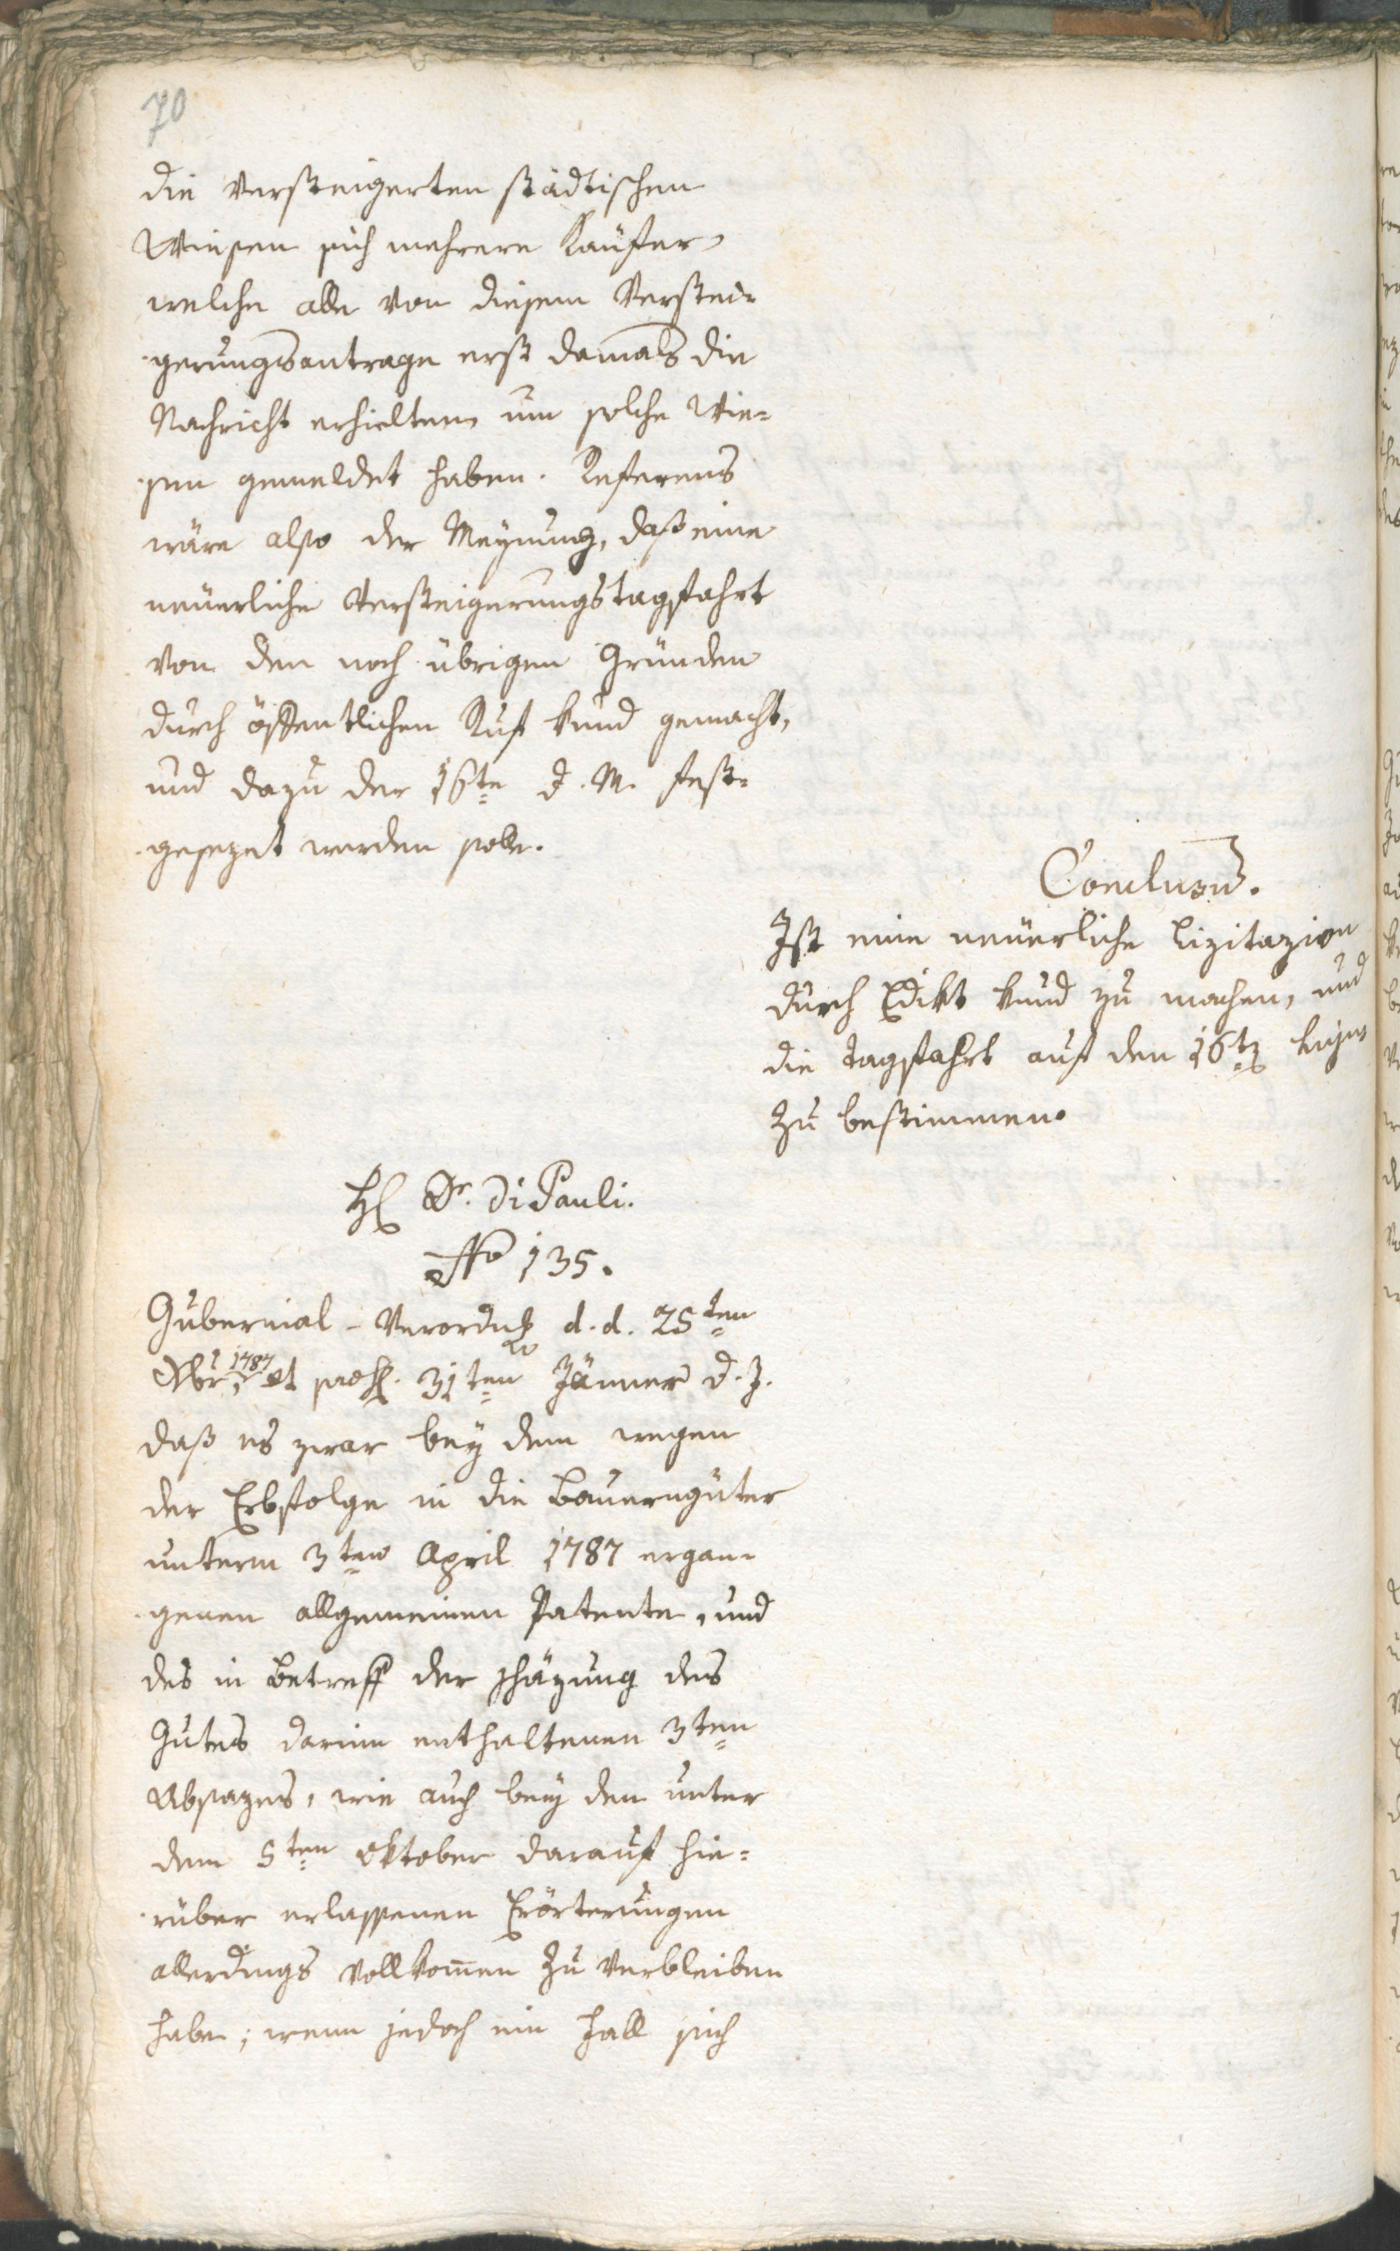 70
die versteigerten städtischen
Wiesen sich mehrere Kaüfer,
welche alle von diesem Verstei-
gerungsantrage erst damals die
Nachricht erhielten, um solche Wie-
sen gemeldet haben. Referens
wäre also der Meÿnung, daß eine
neüerliche Versteigerungstagsfahrt
von den noch übrigen Gründen
durch öffentlichen Ruf kund gemacht,
und dazu der 16te d. M. fest-
gesezet werden solle.
Conclusum.
Ist eine neüerliche Lizitazion
durch Edikt kund zu machen, und
die Tagsfahrt auf den 16ten hujus
zu bestimmen.
H. Dr. Di Pauli.
Nro 135.
Gubernial-Verordnung d. d. 25ten
Xbr: 1787, et præs. 31ten Jänner d. J.
daß es zwar beÿ dem wegen
der Erbfolge in die Bauerngüter
unterm 3ten April 1787 ergan-
genen allgemeinen Patente, und
des in Betreff der Schäzung des
Gutes darinn enthaltenen 3ten
Absazes, wie auch beÿ den unter
dem 5ten Oktober darauf hie-
rüber erlassenen Erörterungen
allerdings vollkom̅en zu verbleiben
habe; wenn jedoch ein Fall sich